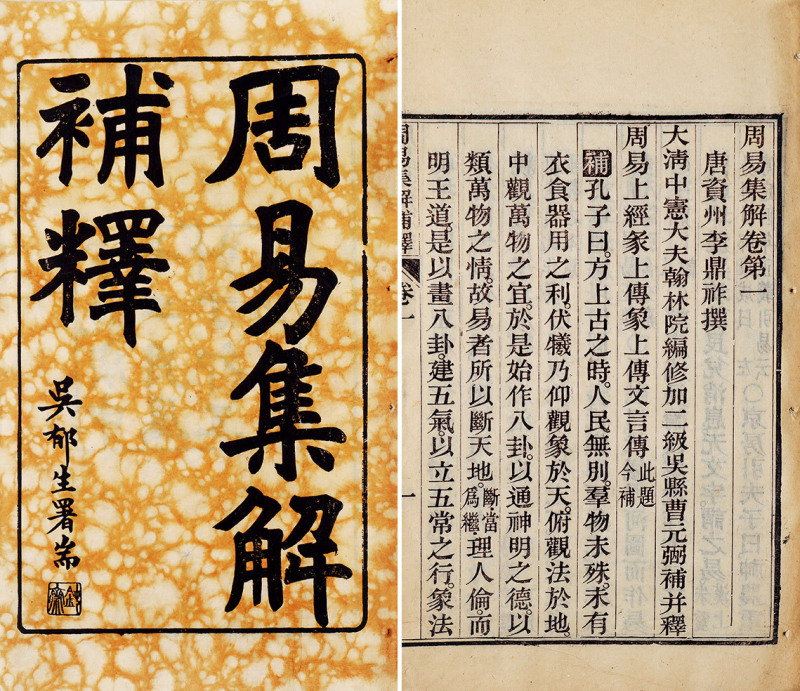 周易集解
補釋
吳郁生署耑
周易集解卷第一
唐資州李鼎祚撰
大清中憲大夫翰林院編修加二級吳縣曹元弼補并釋
周易上經彖上傳象上傳文言傳此題今補
補孔子曰。方上古之時。人民無別。羣物未殊。未有
衣食器用之利。伏犧乃仰觀象於天。俯觀法於地。
中觀萬物之宜。於是始作八卦。以通神明之德。以
類萬物之情。故易者所以斷天地。斷當爲繼。理人倫。而
明王道。是以畫八卦。建五氣。以立五常之行。象法
周易集解補釋 卷一
一